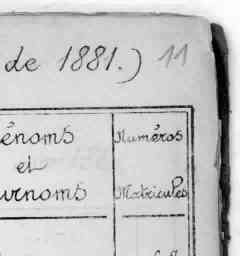 de 1881.) 11
énoms
et
urnoms
Numéros
Matricules